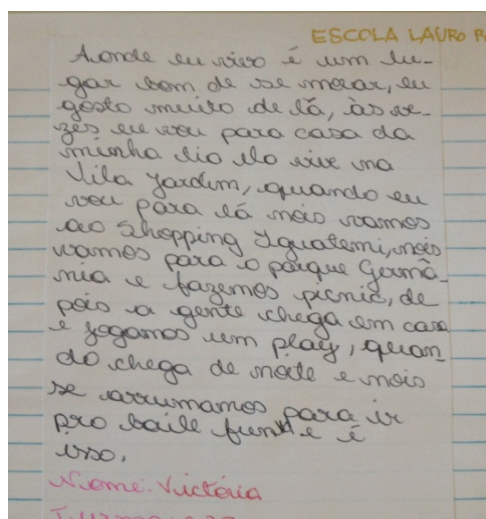 ESCOLA LAURO R
Aonde eu vivo é um lu-
gar bom de se morar, eu
gosto muito de lá, às ve-
zes eu vou para casa da
minha tia ela vive na
Vila Jardim, quando eu
vou para lá nois vamos
ao Shopping Iguatemi, nois
vamos para o parque Germâ-
nia e fazemos picnic, de
pois a gente chega em casa
e jogamos um play, quan_
do chega de noite e nois
se arrumamos para ir
pro baile funk e é
isso.
Nome: Victória